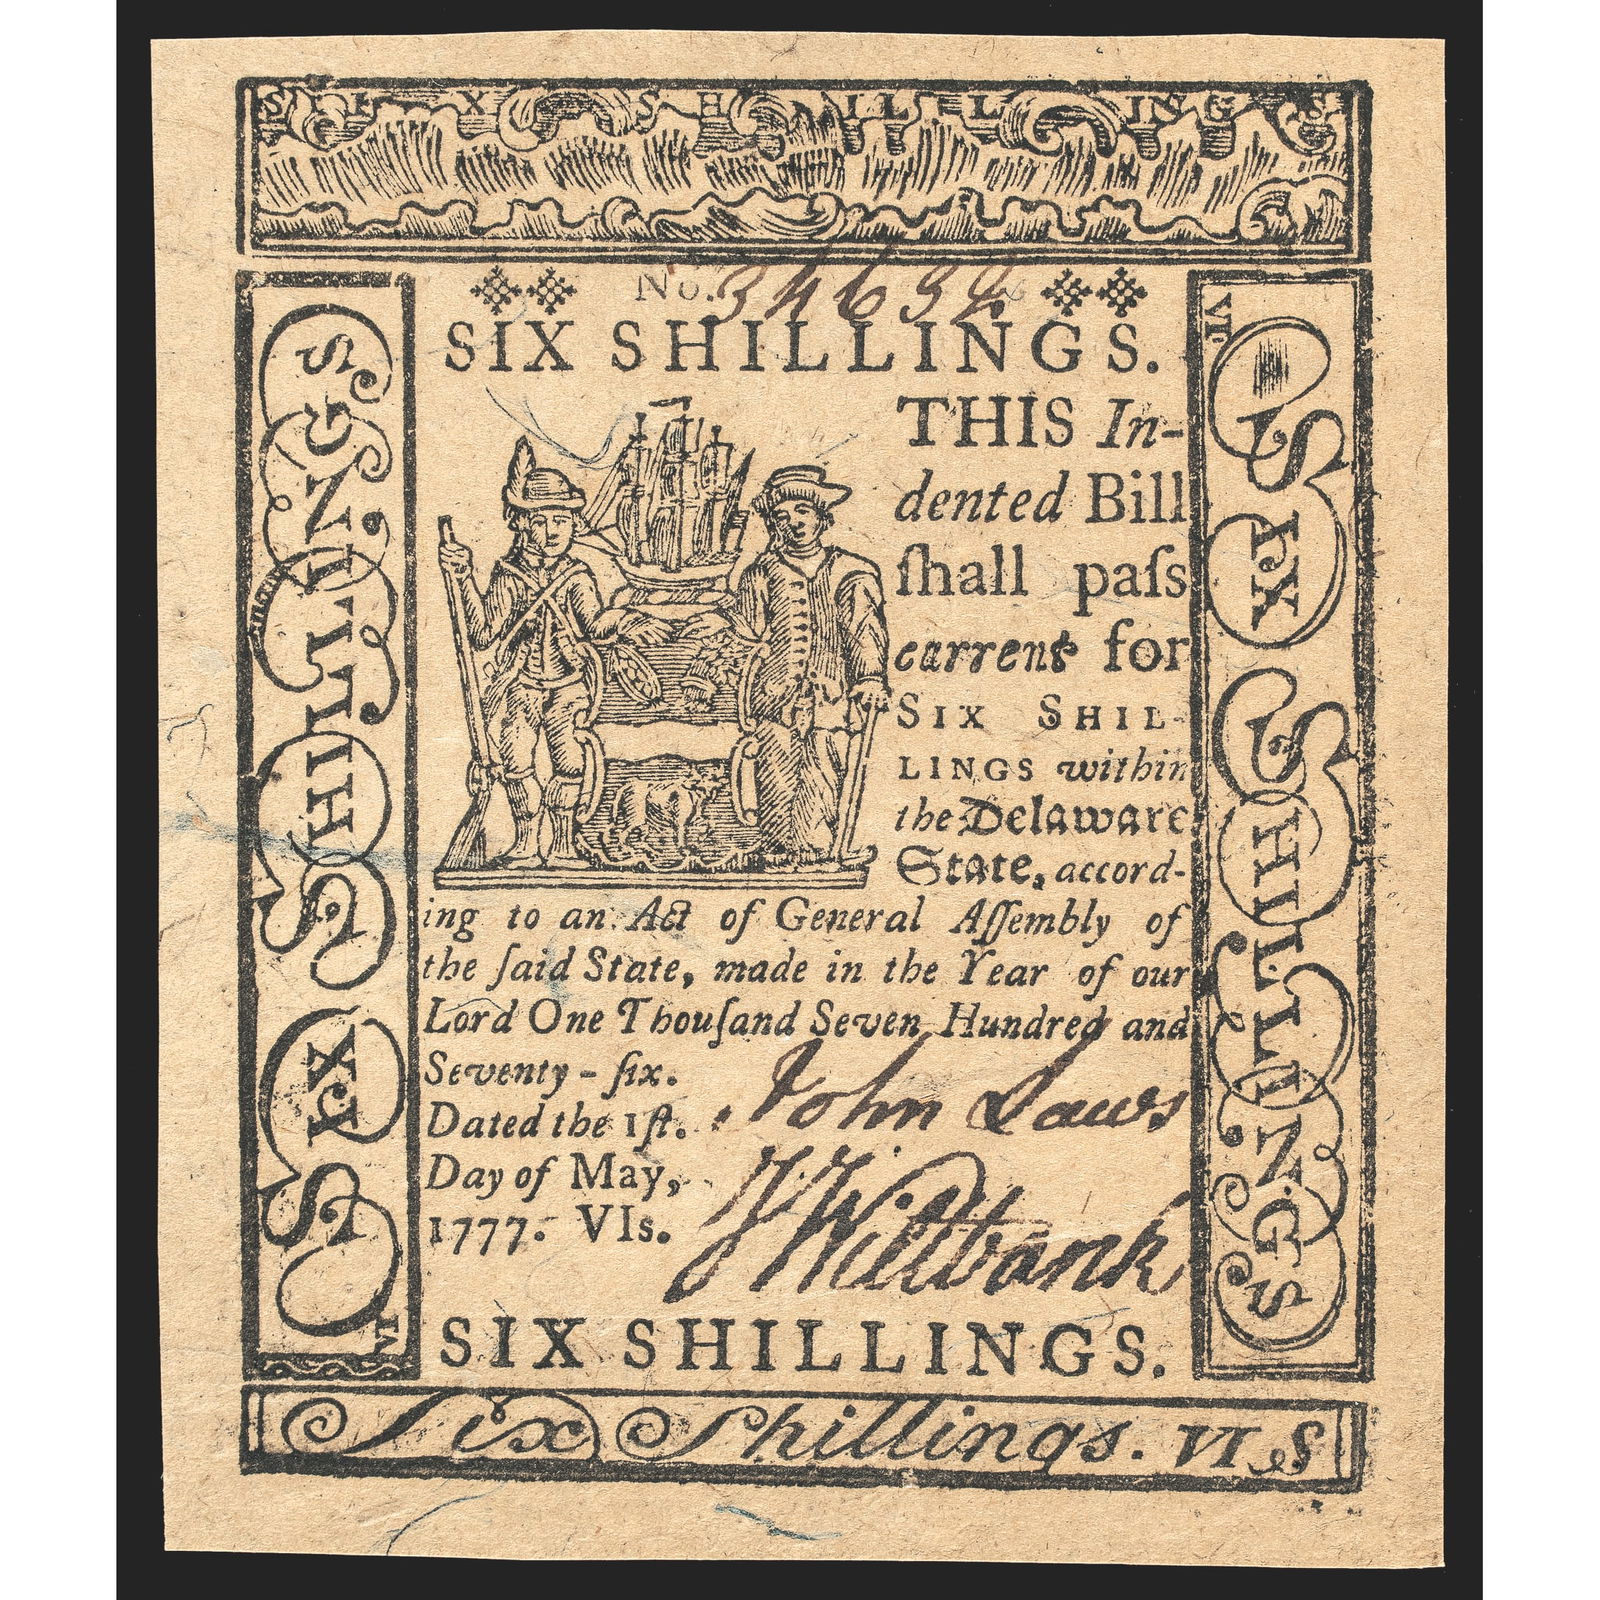 SIX SHILLINGS
No. 34634
SIX SHILLINGS.
THIS In-
dented Bill
ſhall paſs
current for
SIX SHIL-
LINGS within
the Delaware
State, accord-
ing to an Act of General Aſſembly of
the ſaid State, made in the Year of our
Lord One Thouſand Seven Hundred and
Seventy-ſix.
Dated the 1ſt.
Day of May,
1777. VIs.
John Laws
J Wiltbank
SIX SHILLINGS.
Six Shillings. VI s
SIX SHILLINGS
VI
SIX SHILLINGS
VI